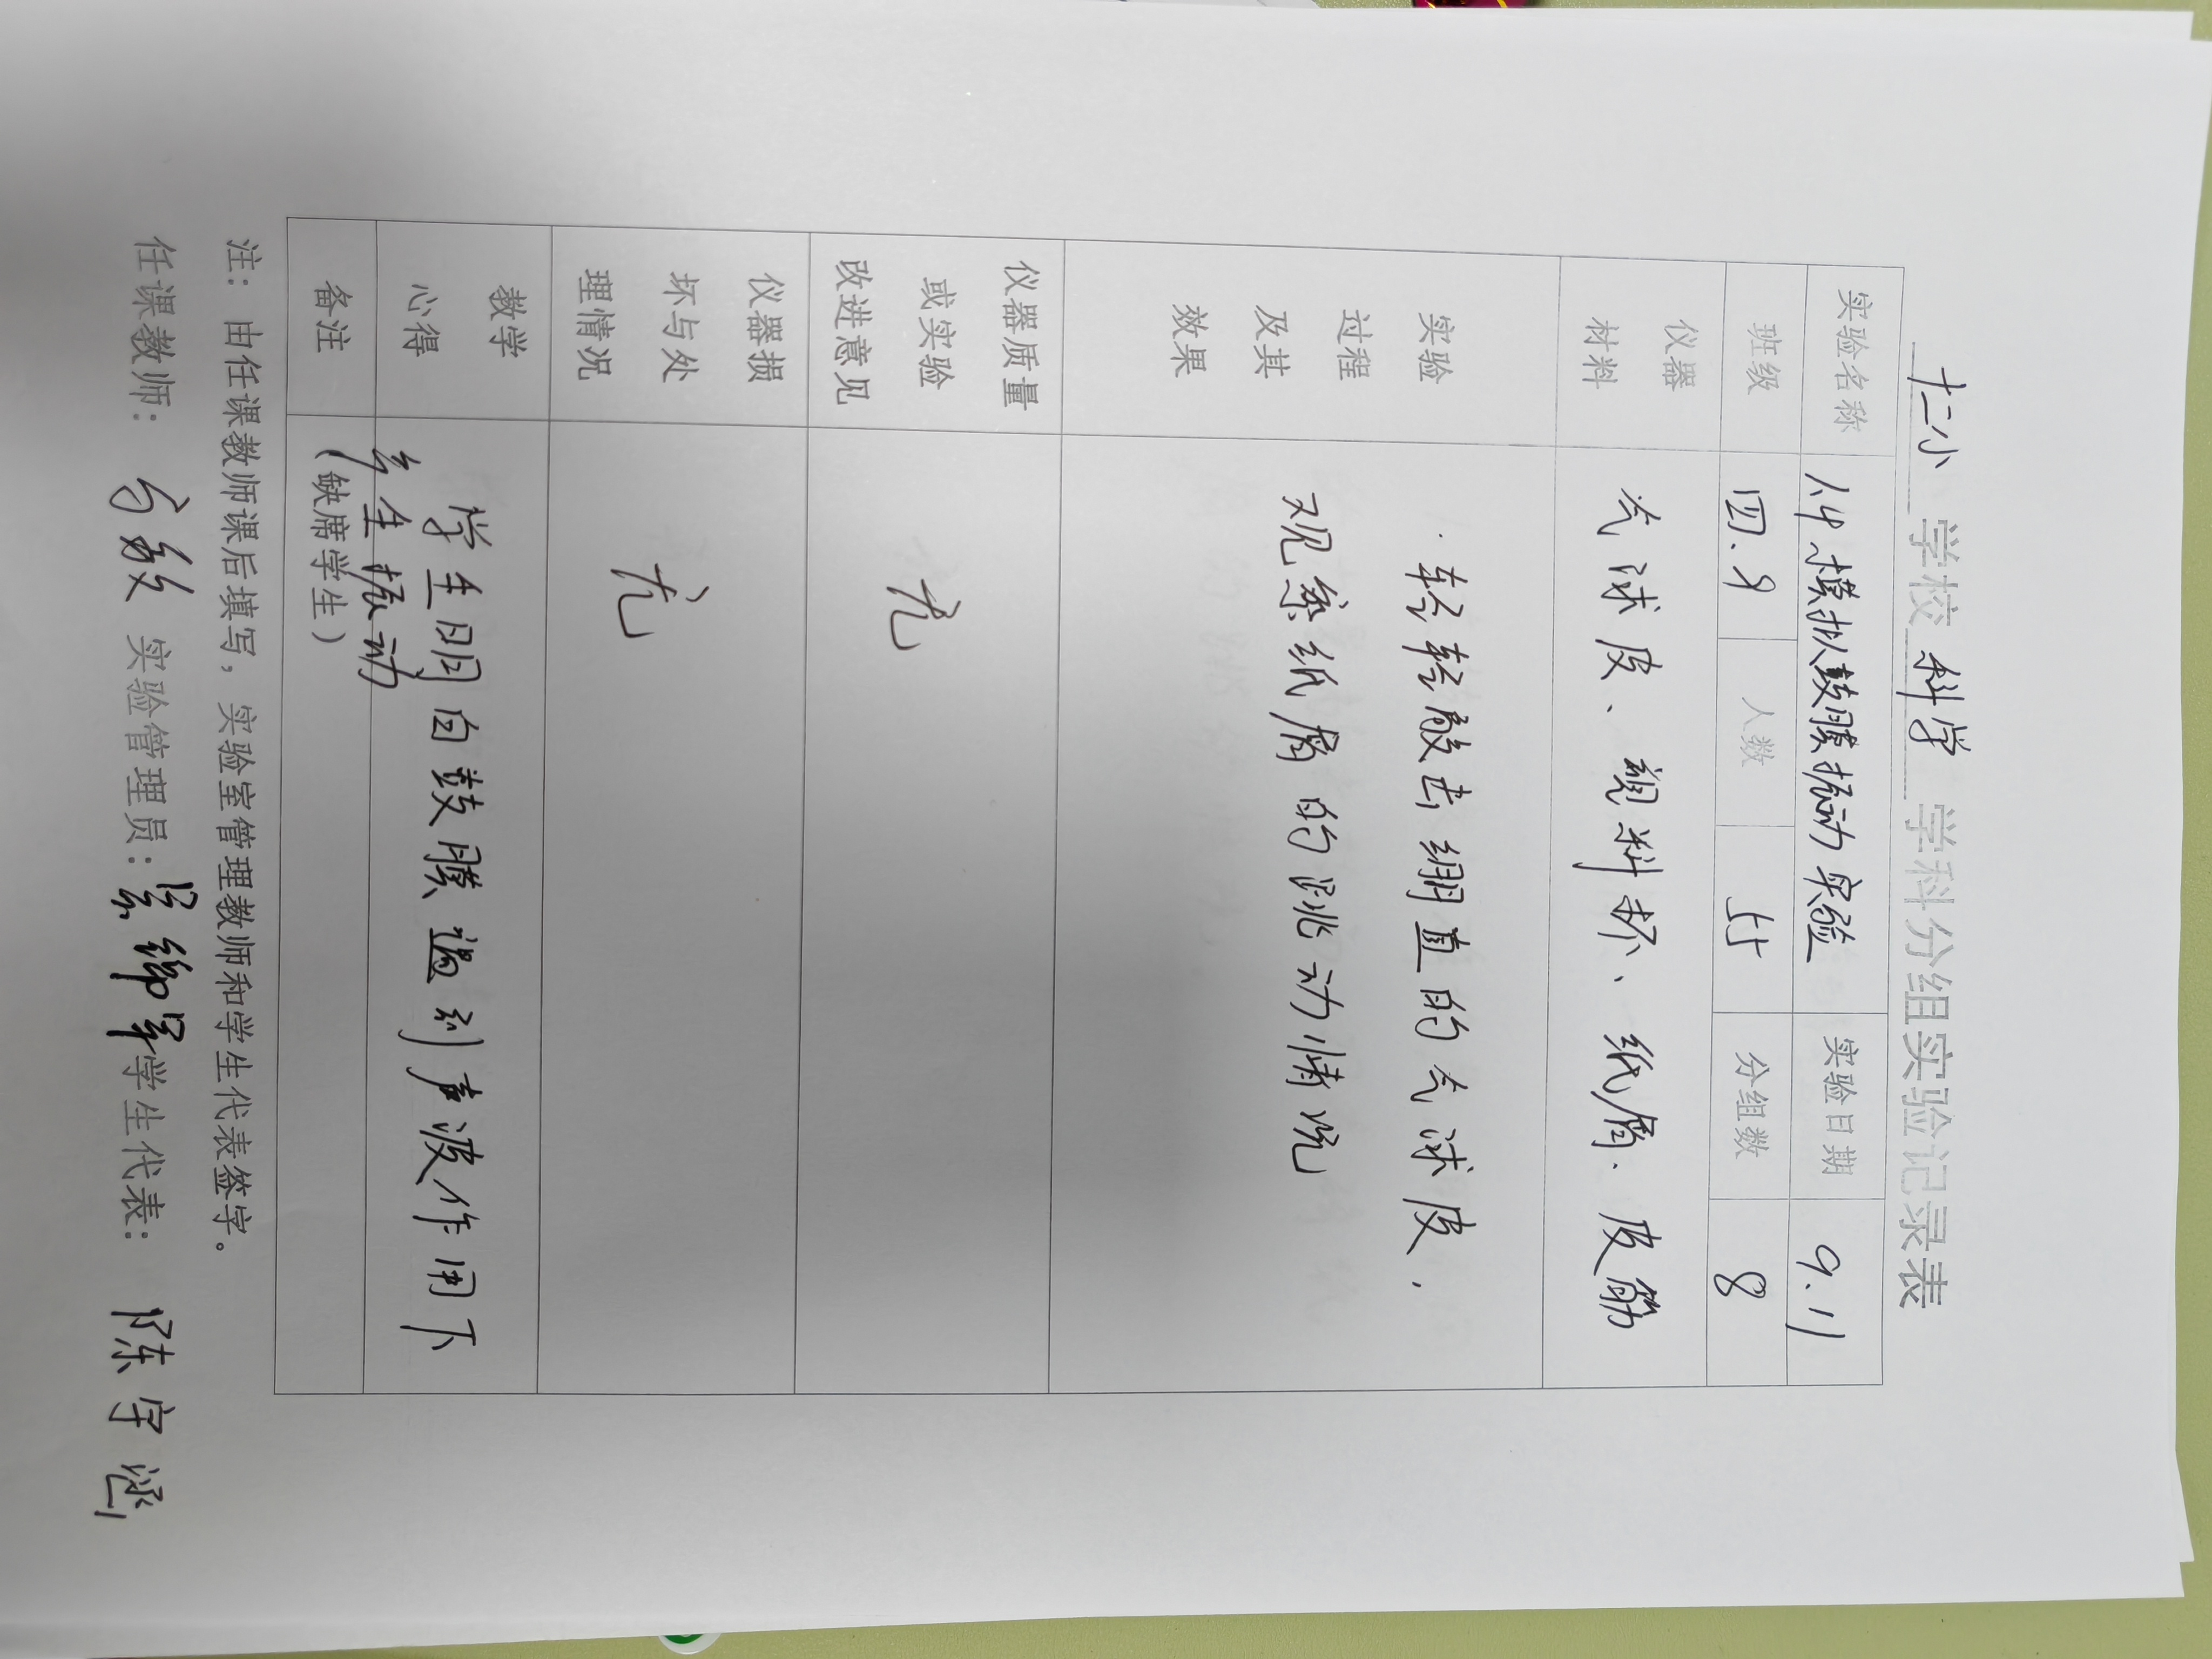 十二小 学校 科学 学科分组实验记录表
实验名称 1.4 模拟鼓膜振动实验 实验日期 9.11
班级 四.9 人数 55 分组数 8
仪器
材料
气球皮、塑料杯、纸屑、皮筋
实验
过程
及其
效果
轻轻敲击绷直的气球皮，
观察纸屑的跳动情况
仪器质量
或实验
改进意见
无
仪器损
坏与处
理情况
无
教学
心得
学生明白鼓膜遇到声波作用下
产生振动
备注 （缺席学生）
注：由任课教师课后填写，实验室管理教师和学生代表签字。
任课教师： 实验管理员： 学生代表：陈宇涵